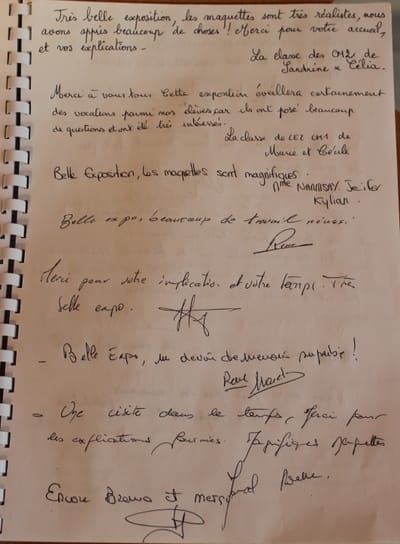 Très belle exposition, les maquettes sont très réalistes, nous
avons appris beaucoup de choses !! Merci pour votre accueil,
et vos explications -
La classe des CM2 de
Sandrine et Célia.
Merci à vous tous Cette exposition éveillera certainement
des vocations parmi nos élèves car ils ont posé beaucoup
de questions et ont été très intéressés.
La classe de CE2 CM1 de
Marie et Cécile
Belle Exposition, les maquettes sont magnifiques.
Mme Jennifer
Kylian.
Belle expo, beaucoup de travail
Merci pour votre implication et votre temps. Très
belle expo.
- Belle Expo, un devoir de mémoire superbe !
- Une visite dans le temps, Merci pour
les explications fournies. Magnifiques maquettes
Encore Bravo et merci